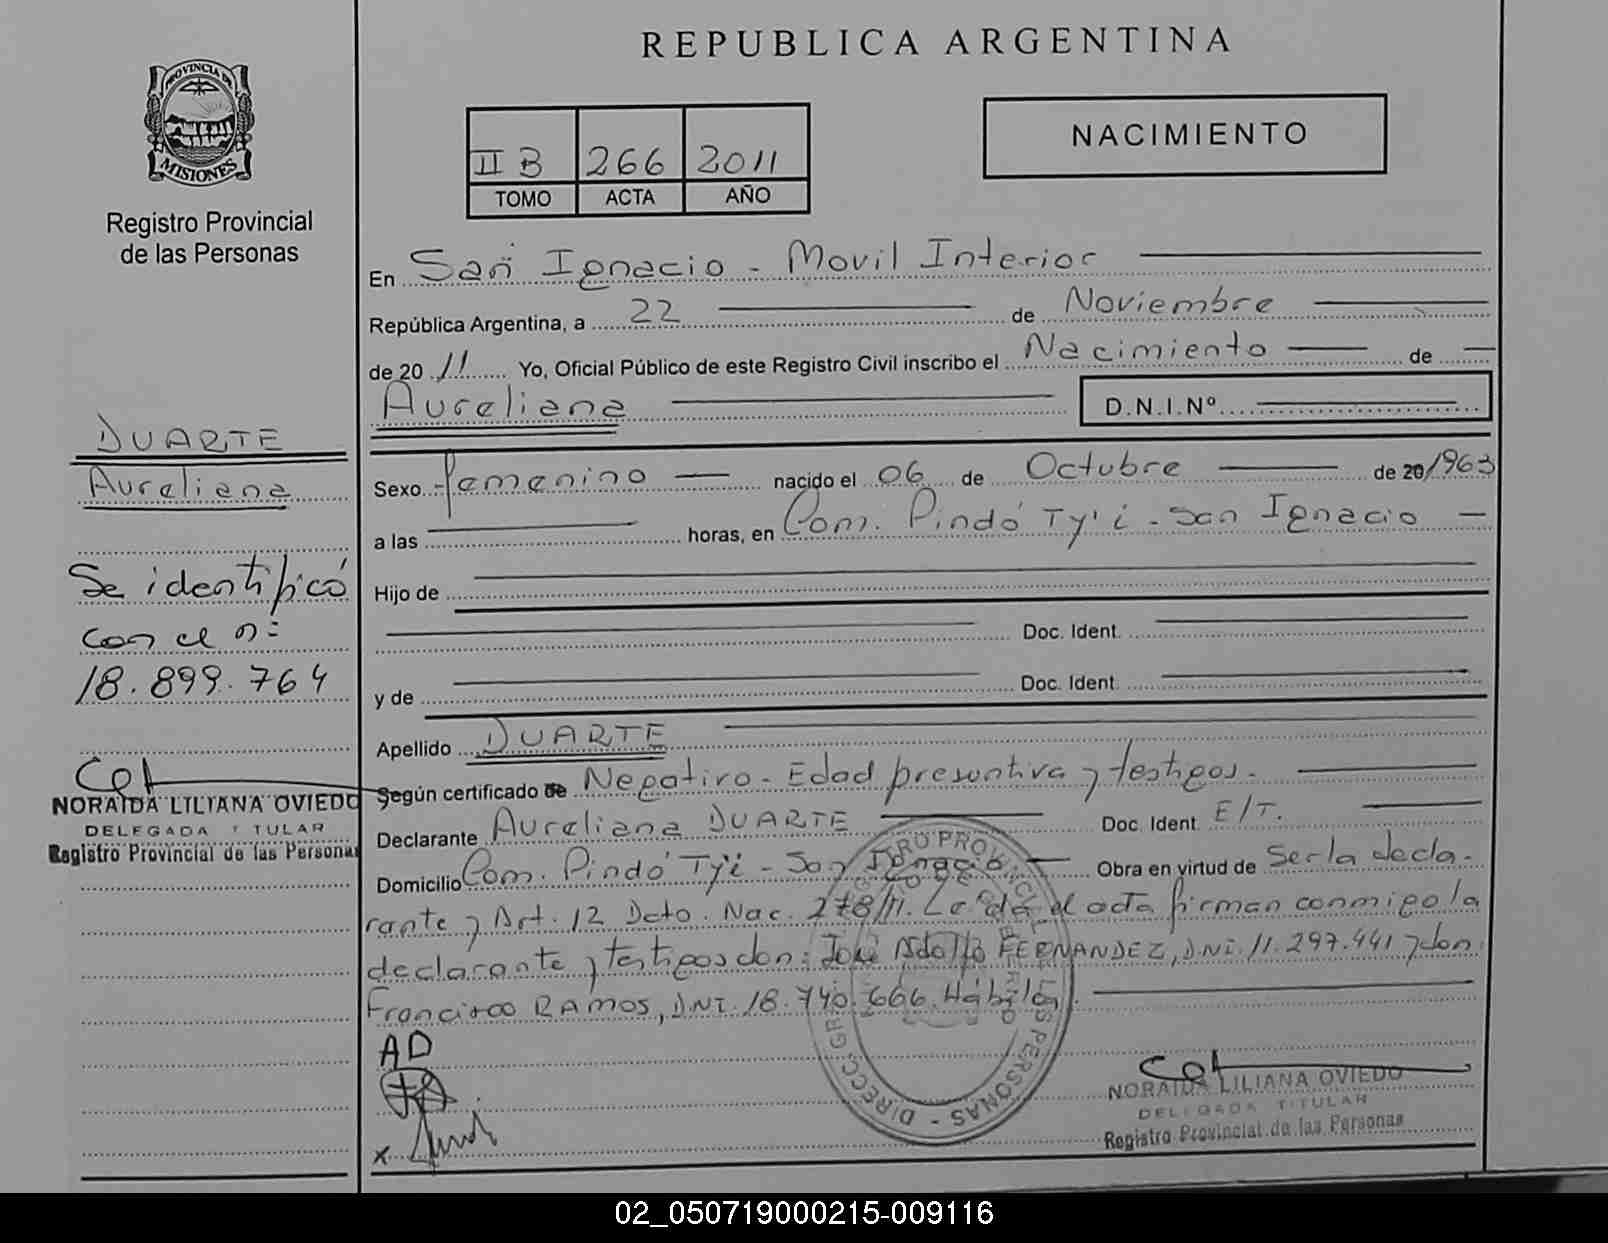 REPUBLICA ARGENTINA
PROVINCIA DE
MISIONES
Registro Provincial
de las Personas
II B 266 2011
TOMO ACTA AÑO
NACIMIENTO
En San Ignacio - Movil Interior
República Argentina, a 22 de Noviembre
de 2011 Yo, Oficial Público de este Registro Civil inscribo el Nacimiento de
Aureliana D.N.I.Nº
Sexo femenino nacido el 06 de Octubre de 20/1963
a las horas, en Com. Pindó Ty'i - San Ignacio
Hijo de
Doc. Ident.
y de Doc. Ident.
Apellido DUARTE
Según certificado de Negativo - Edad presuntiva y testigos.
Declarante Aureliana DUARTE Doc. Ident. E/T.
Domicilio Com. Pindó Ty'i - San Ignacio Obra en virtud de Ser la decla-
rante y Art. 12 Dcto. Nac. 278/11. Leída el acta firman conmigo la
declarante y testigos don: José Adolfo FERNANDEZ, DNI. 11.297.441 y don
Francisco RAMOS, DNI. 18.740.666. Hábiles.
AD
x
NORAIDA LILIANA OVIEDO
DELEGADA TITULAR
Registro Provincial de las Personas
DUARTE
Aureliana
Se identificó
con el nº
18.899.764
NORAIDA LILIANA OVIEDO
DELEGADA TITULAR
Registro Provincial de las Personas
02_050719000215-009116